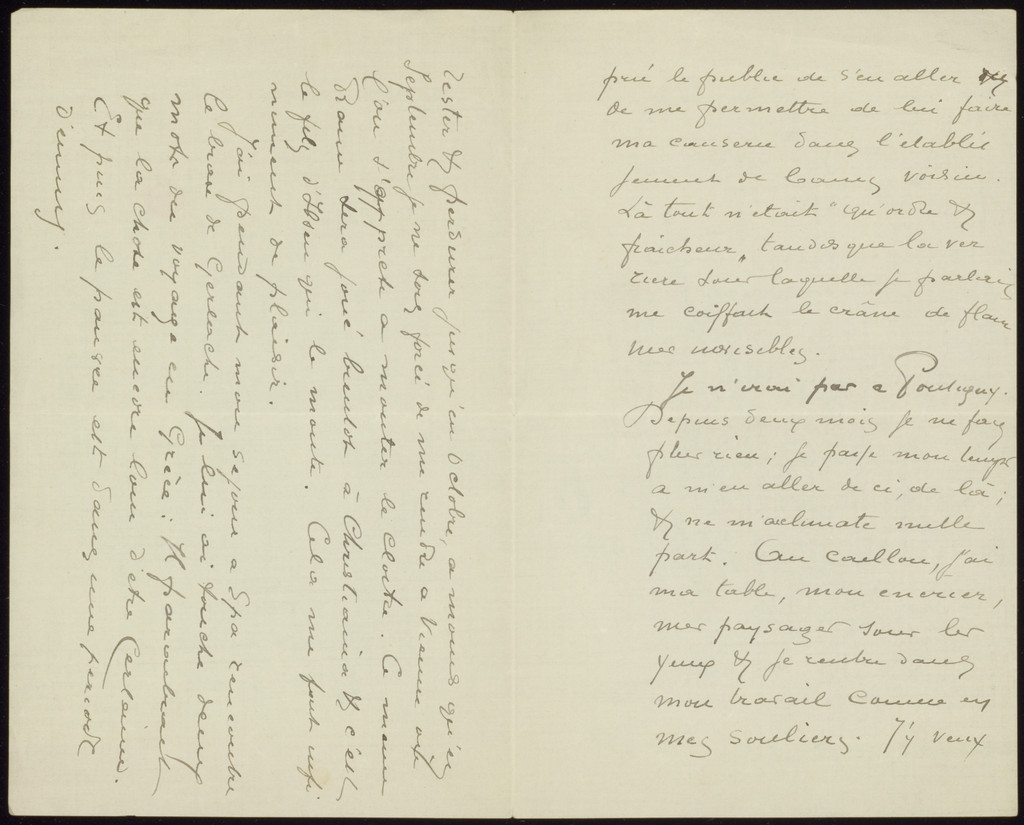 prié le public de s'en aller &
de me permettre de lui faire
ma causerie dans l'établis
sement de bains voisin.
Là tout n'était "qu'ordre &
fraicheur" tandis que la ver
rière sous laquelle je parlerais
me coiffait le crâne de flam
mes invisibles.
Je n'irai pas a Pontigny.
Depuis deux mois je ne fais
plus rien; je passe mon temps
a m'en aller de ci, de là;
& ne m'aclimate nulle
part. Au caillou, j'ai
ma table, mon encrier,
mes paysages sous les
yeux & je rentre dans
mon travail comme en
mes souliers. J'y veux
rester & perdurer jusqu'en octobre, a moins qu'en
septembre je ne sois forcé de me rendre a Vienne où
l'on s'apprete a monter le Cloitre. Ce meme
drame sera joué bientot à Christiania & c'est
le fils d'Ibsen qui le monte. Cela me fait infi
niment de plaisir.
J'ai pendant mon sejour a Spa rencontré
le brave de Gerlache. Je lui ai touché deux
mots du voyage en Grèce. Il paraitrait
que la chose est encore loin d'etre certaine.
Et puis le pauvre est dans une periode
d'ennuis.